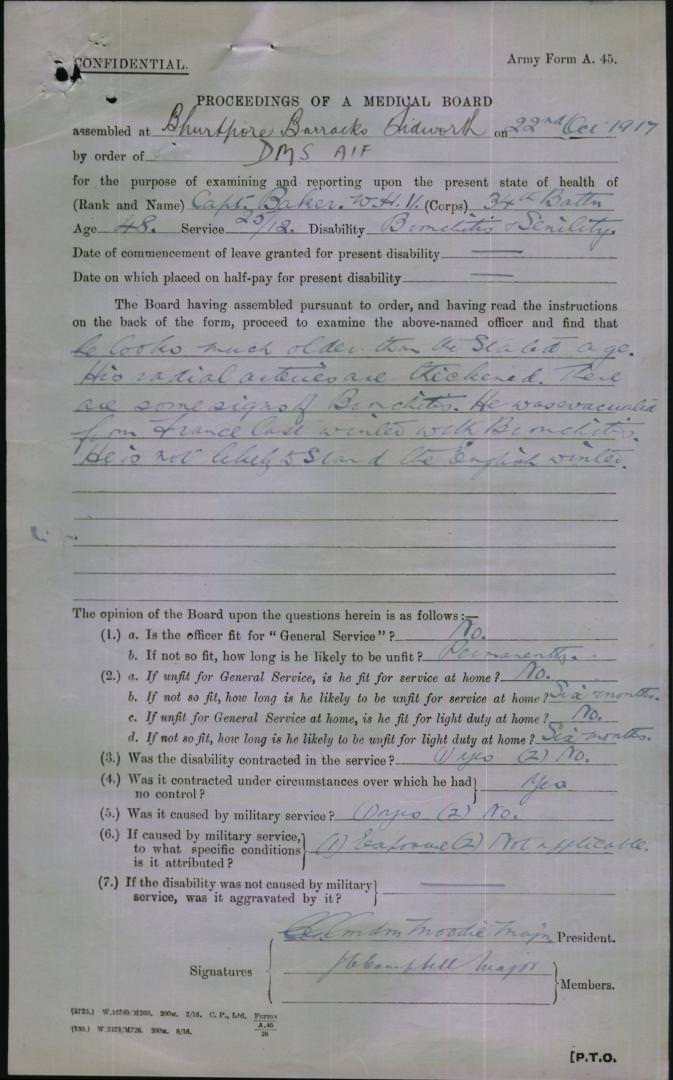 CONFIDENTIAL.
Army Form A. 45.
PROCEEDINGS OF A MEDICAL BOARD
assembled at Bhurtpore Barracks Tidworth on 22nd Oct 1917
by order of DMS AIF
for the purpose of examining and reporting upon the present state of health of
(Rank and Name) Capt. Baker. W.H.V. (Corps) 34th Battn
Age 48. Service 20/12. Disability Bronchitis & Senility.
Date of commencement of leave granted for present disability
Date on which placed on half-pay for present disability
The Board having assembled pursuant to order, and having read the instructions
on the back of the form, proceed to examine the above-named officer and find that
he looks much older than the stated age.
His radial arteries are thickened. There
are some signs of Bronchitis. He was evacuated
from France last winter with Bronchitis.
He is not likely to stand the English winter.
The opinion of the Board upon the questions herein is as follows:—
(1.) a. Is the officer fit for "General Service"? No.
b. If not so fit, how long is he likely to be unfit? Permanently.
(2.) a. If unfit for General Service, is he fit for service at home? No.
b. If not so fit, how long is he likely to be unfit for service at home? Six months.
c. If unfit for General Service at home, is he fit for light duty at home? No.
d. If not so fit, how long is he likely to be unfit for light duty at home? Six months.
(3.) Was the disability contracted in the service? (1) yes (2) No.
(4.) Was it contracted under circumstances over which he had
no control? Yes
(5.) Was it caused by military service? (1) yes (2) No.
(6.) If caused by military service,
to what specific conditions
is it attributed? (1) Exposure (2) Not applicable.
(7.) If the disability was not caused by military
service, was it aggravated by it?
Moodie Major President.
Signatures
Campbell Major
Members.
W.16740/M268. 200m. 2/16. C. P., Ltd. Forms
A.45
W 3173/M726. 200m. 8/16.
[P.T.O.